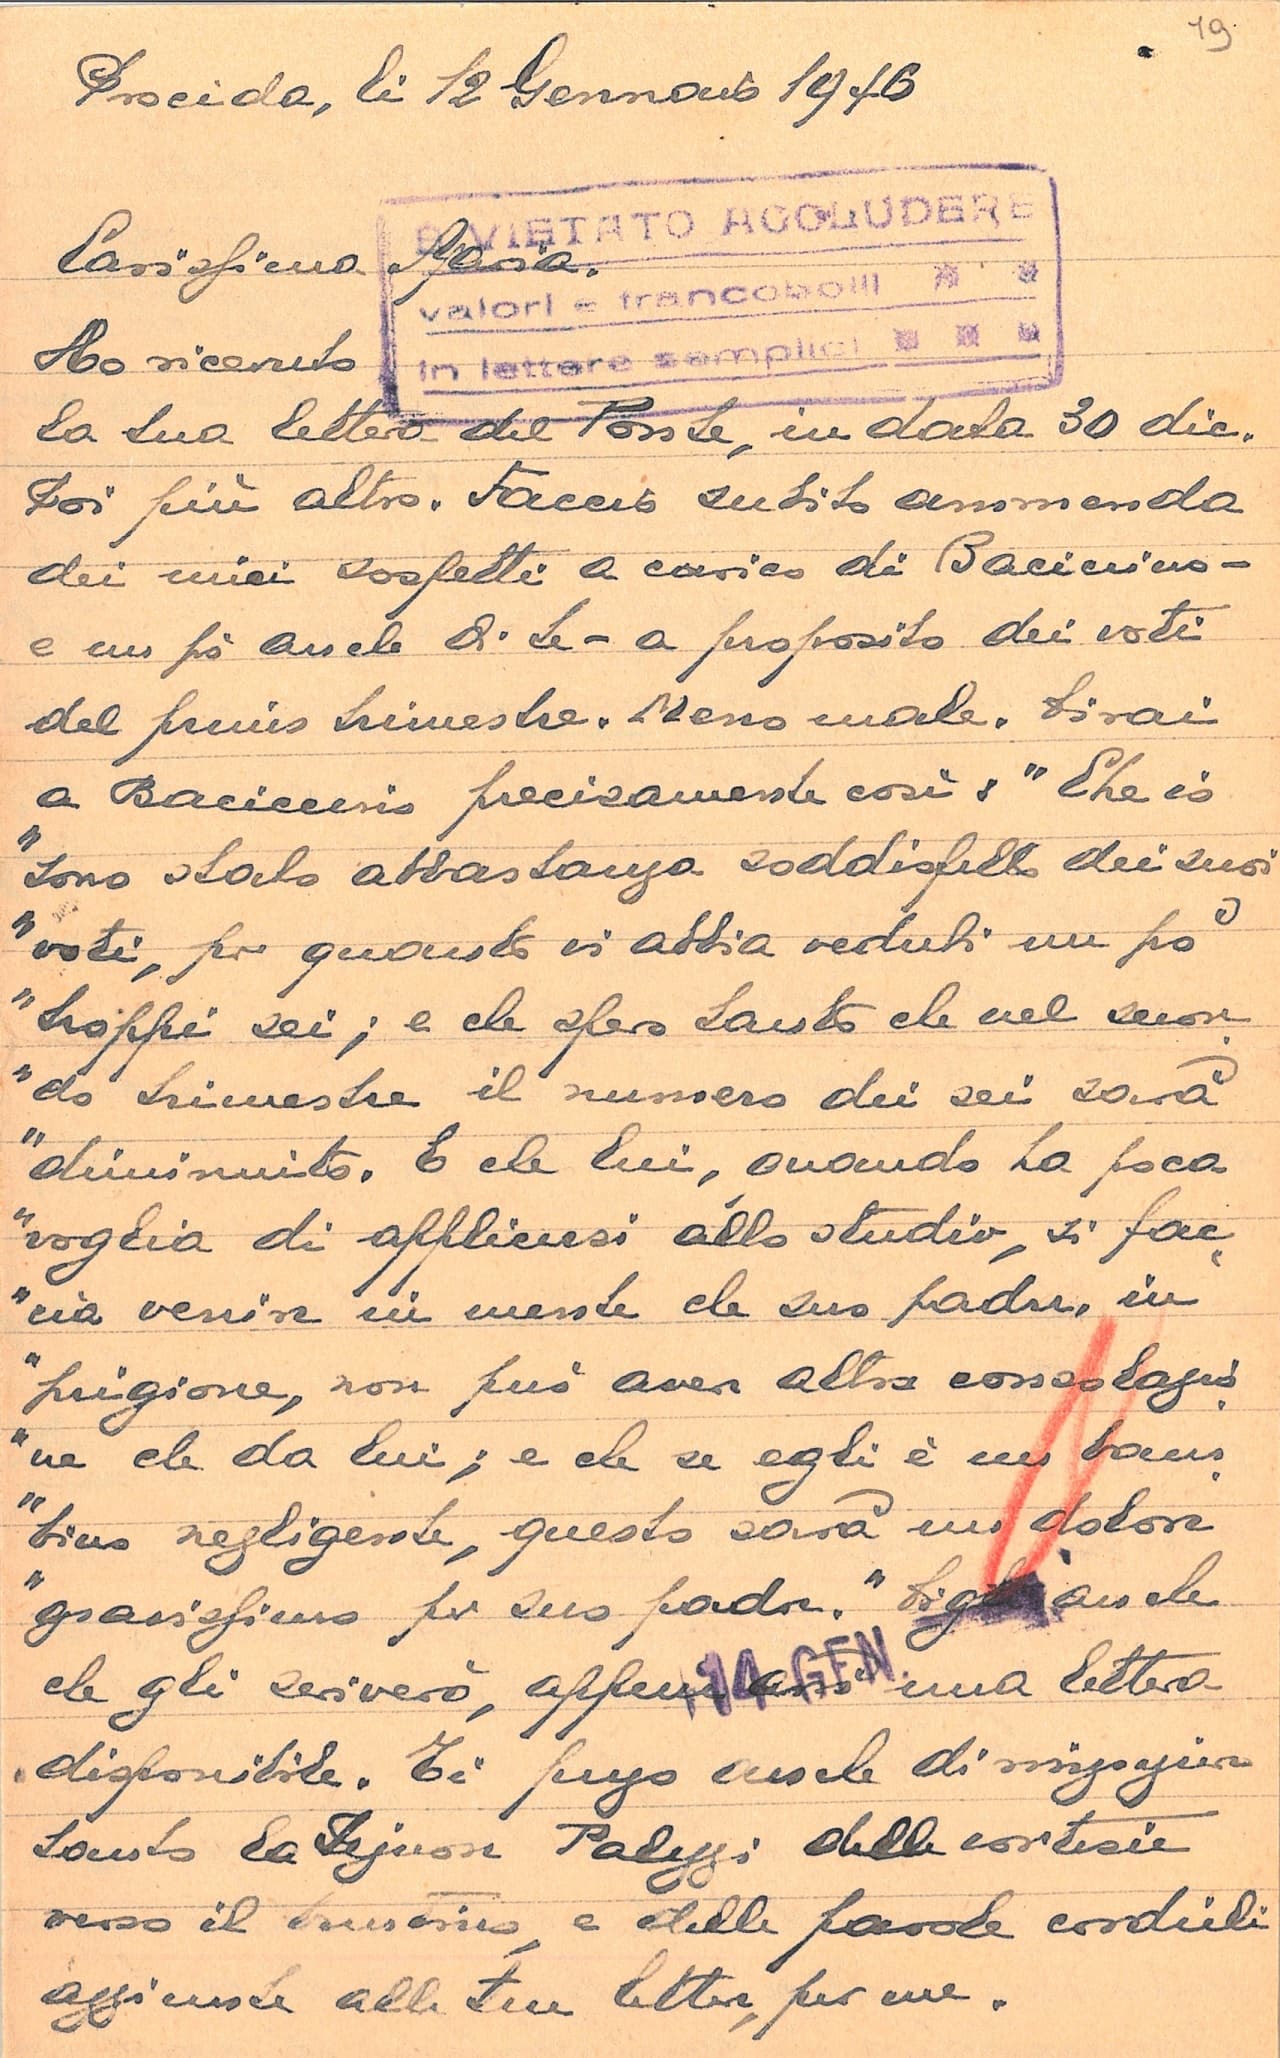 19
Procida, li 12 Gennaio 1946
È VIETATO ACCLUDERE
Carissima Maria.
valori e francobolli
Ho ricevuto
in lettere semplici
la tua lettera del Ponte, in data 30 dic.
Poi più altro. Faccio subito ammenda
dei miei sospetti a carico di Baciccino -
e un pò anche di te - a proposito dei voti
del primo trimestre. Meno male. Dirai
a Baciccino precisamente così: "Che io
"sono stato abbastanza soddisfatto dei suoi
"voti, per quanto vi abbia veduti un pò
"troppi sei; e che spero tanto che nel secon
"do trimestre il numero dei sei sarà
"diminuito. E che lui, quando ha poca
"voglia di applicarsi allo studio, si fac
"cia venire in mente che suo padre, in
"prigione, non può avere altra consolazio
"ne che da lui; e che se egli è un tan
"tino negligente, questo sarà un dolore
"gravissimo per suo padre." Digli anche
che gli scriverò, appena avrò una lettera
14 GEN.
disponibile. Ti prego anche di ringraziare
tanto la Signora Paluzzi delle cortesie
verso il e delle parole cordiali
aggiunte alla tua lettera, per me.